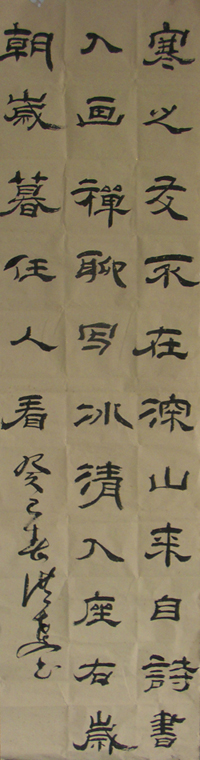 寒之友不在深山来自詩書
入画禪聊写冰清入座右歲
朝歲暮任人看
癸巳春洪书